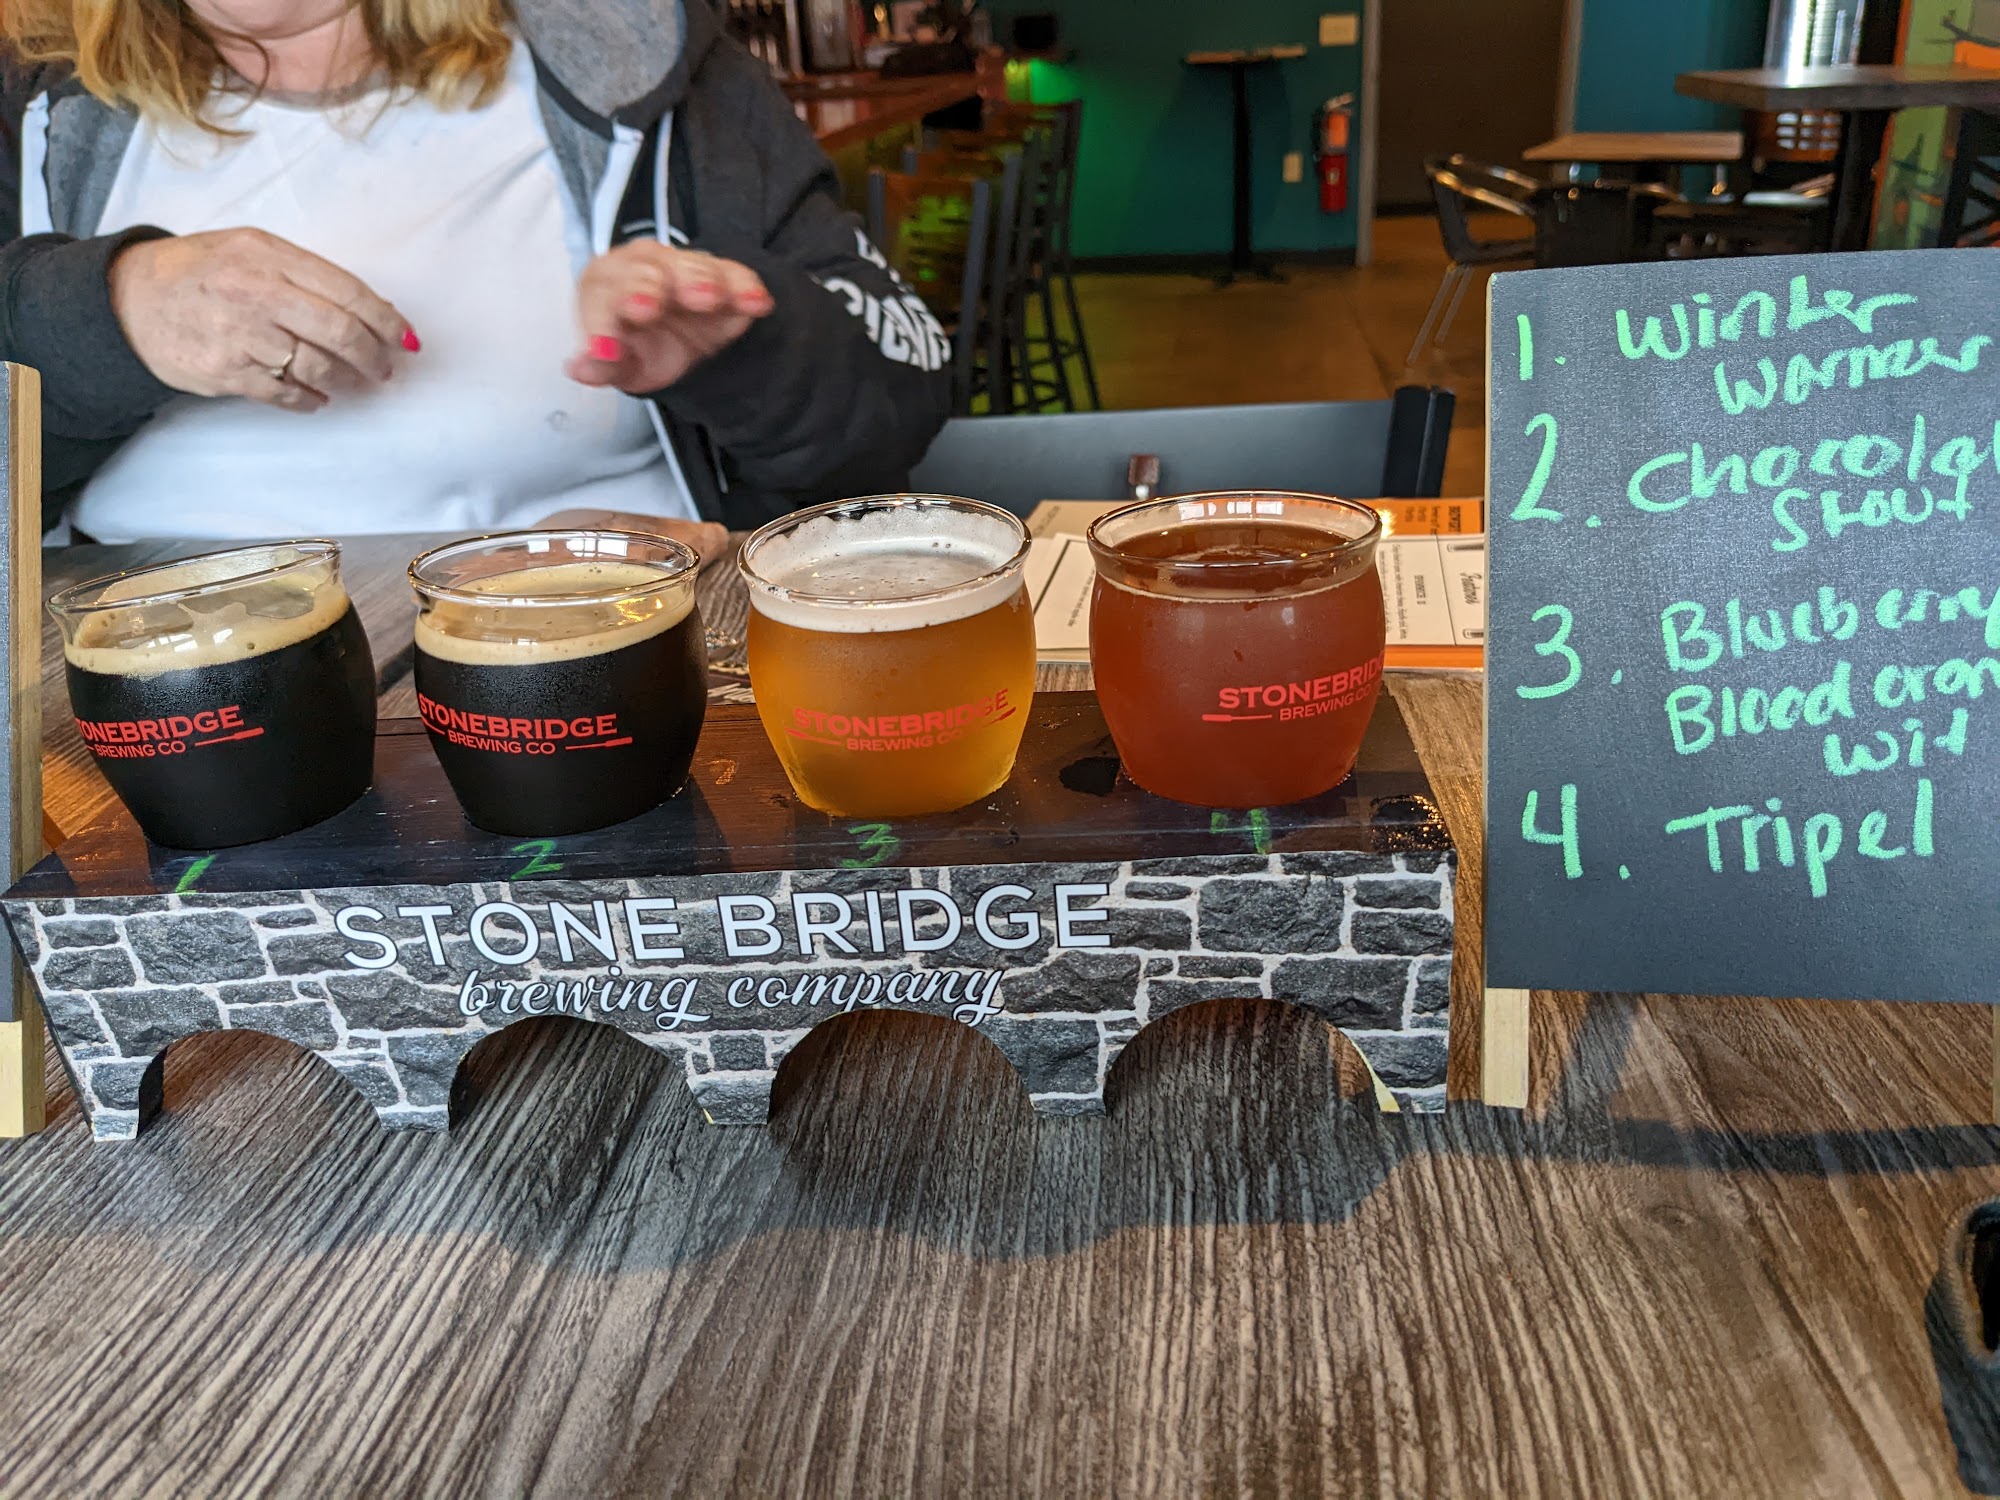 1. Winter
Warmer
2. Chocolat
Stout
3. Blueberry
Blood oran
Wit
4. Tripel
ONEBRIDGE
BREWING CO
STONEBRIDGE
BREWING CO
STONEBRIDGE
BREWING CO
STONEBRIDG
BREWING CO
1 2 3 4
STONE BRIDGE
brewing company